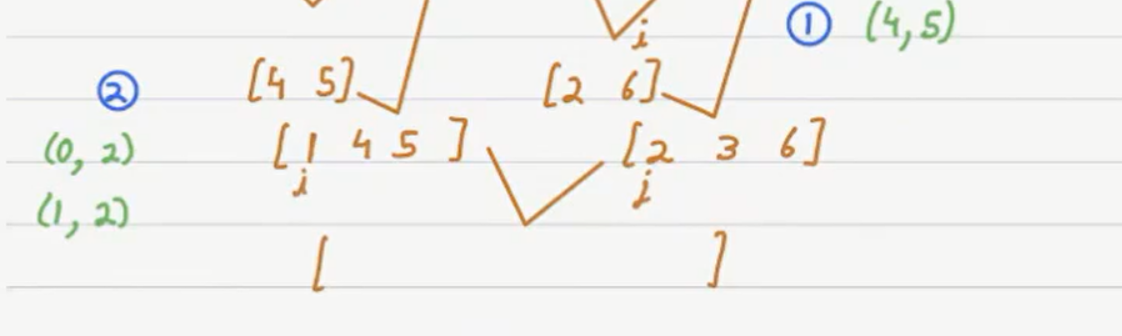 ① (4,5)
j
② [4 5] [2 6]
(0, 2) [1 4 5] [2 3 6]
i j
(1, 2)
[ ]